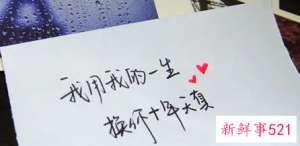 我用我的一生
换你十年天真
新鲜事521